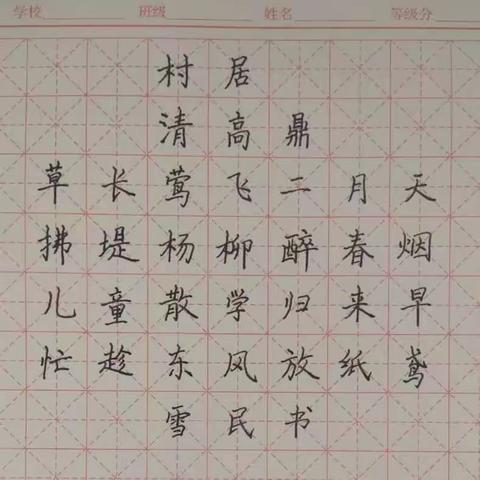 学校 班级 姓名 等级分
村居
清 高鼎
草长莺飞二月天
拂堤杨柳醉春烟
儿童散学归来早
忙趁东风放纸鸢
雪民书